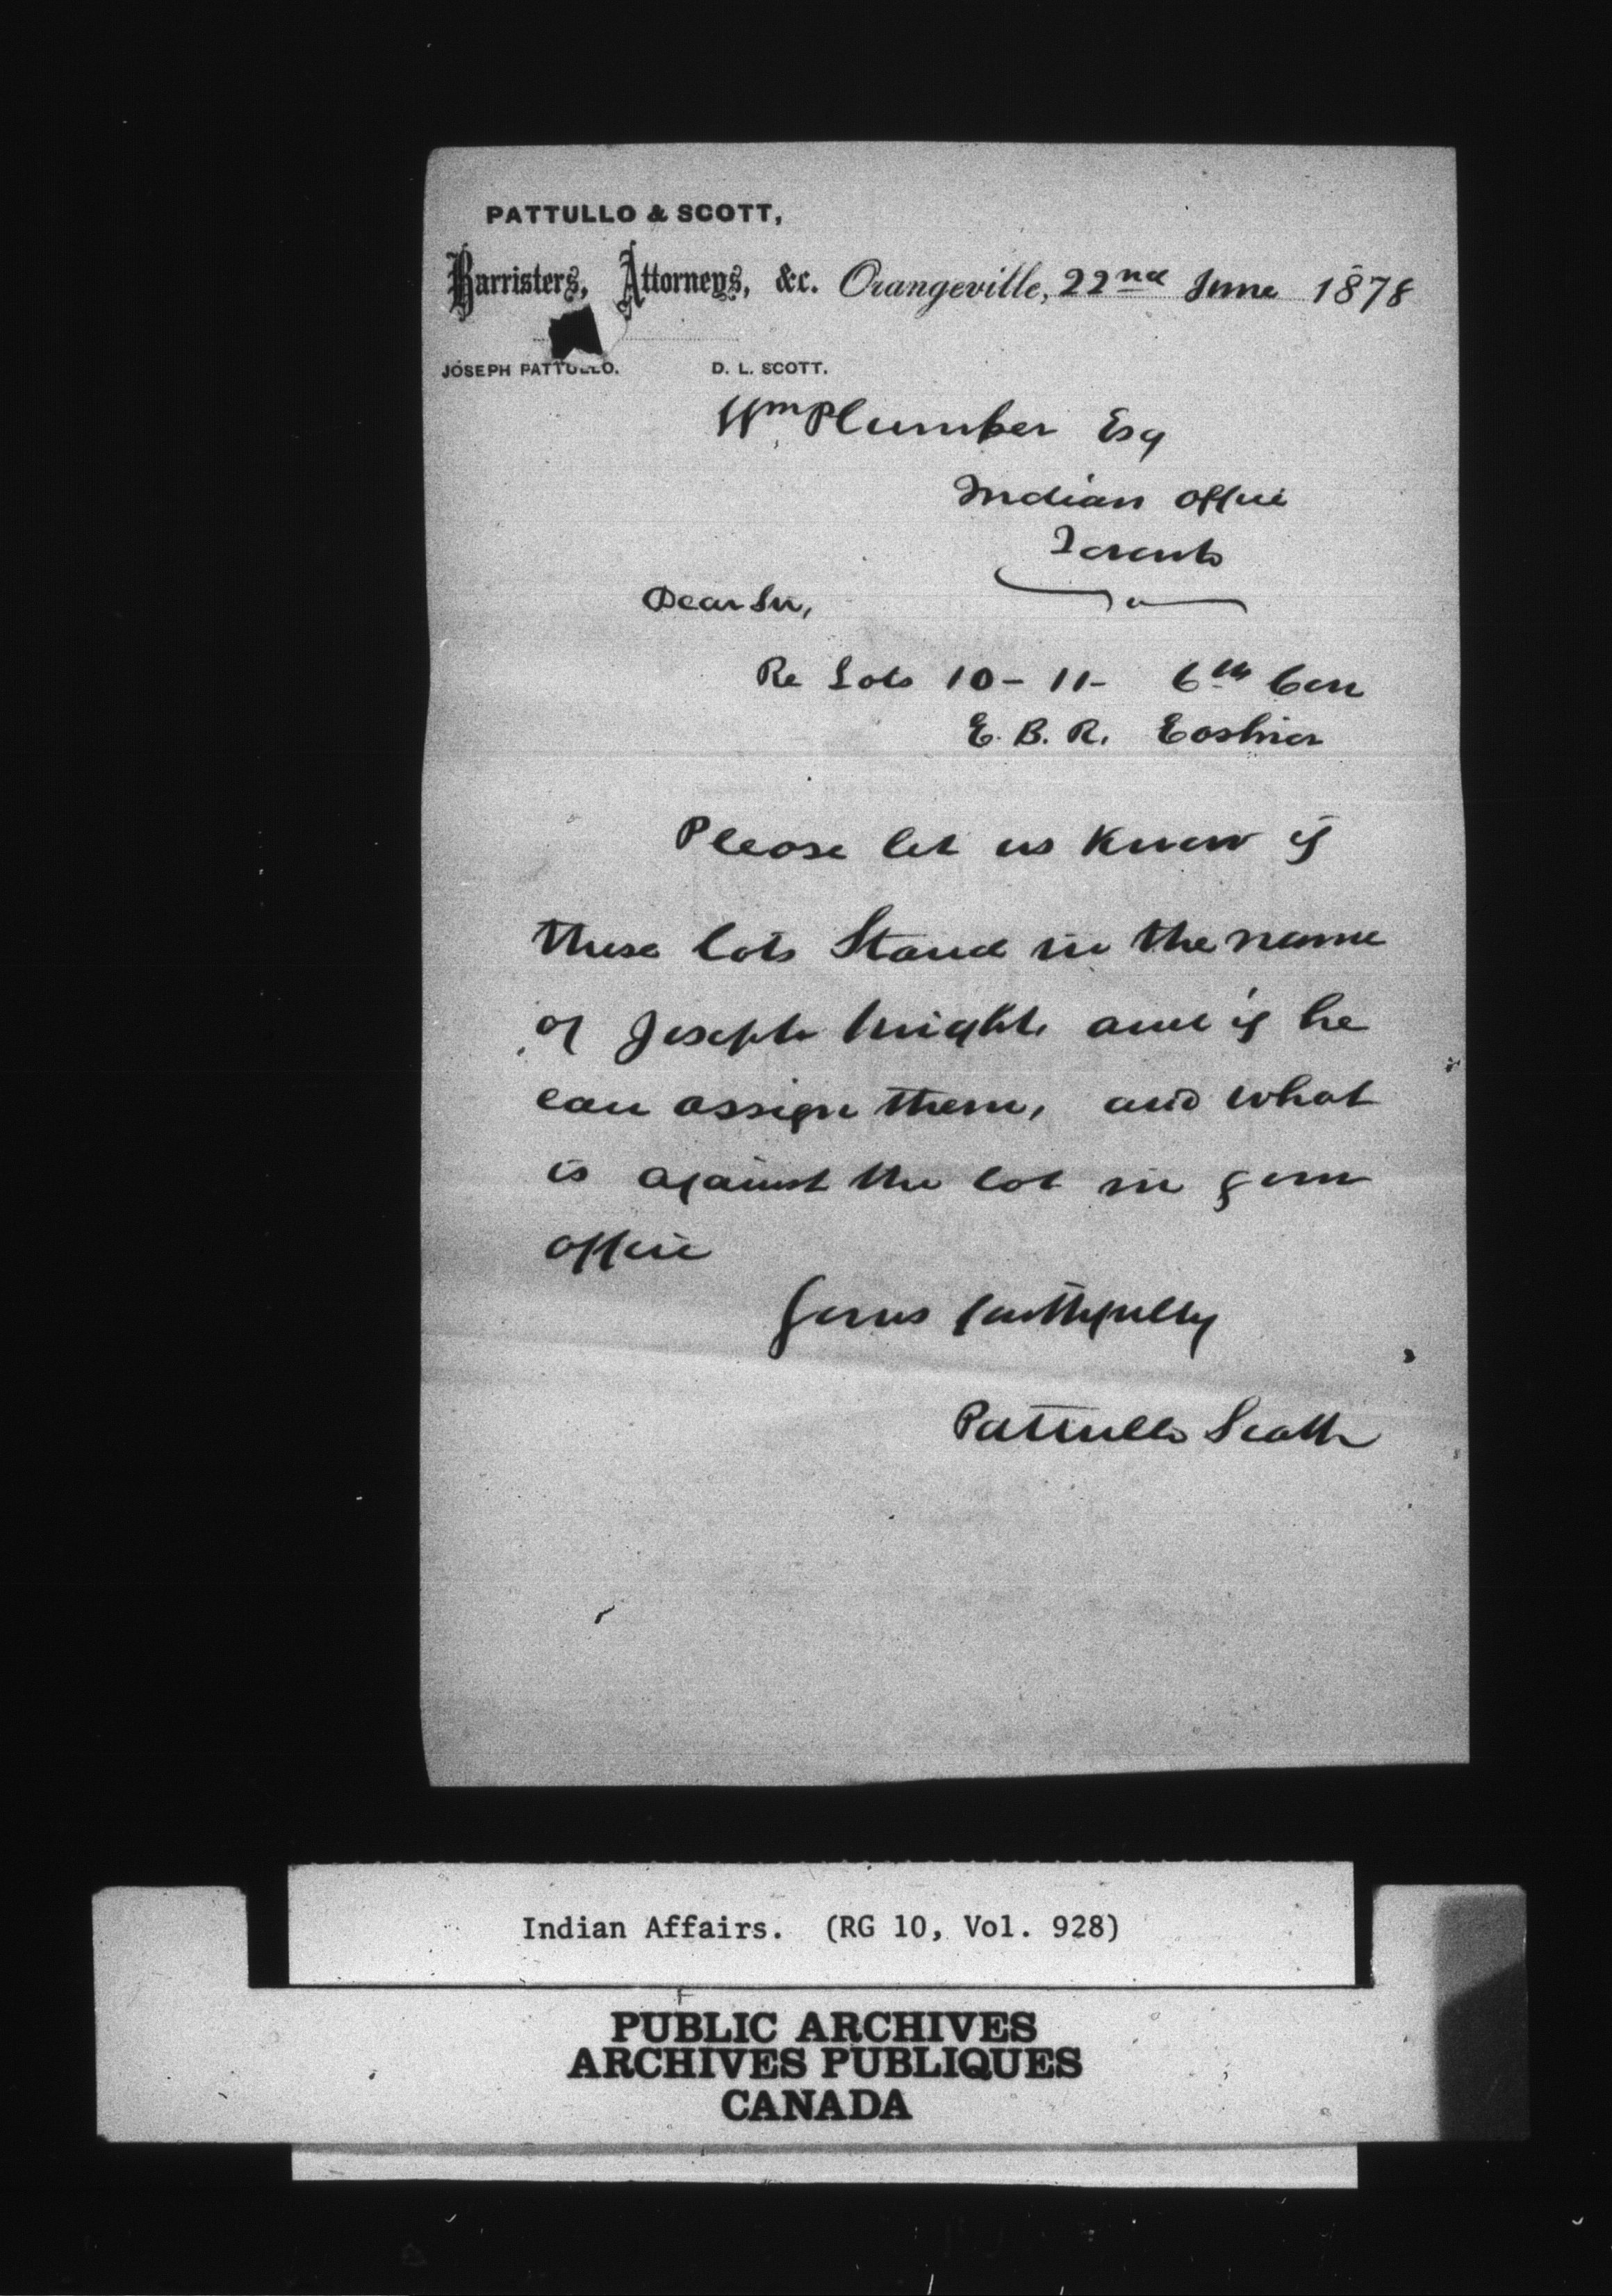 PATTULLO & SCOTT,
Barristers, Attorneys, &c. Orangeville, 22nd June 1878
JOSEPH PATTULLO. D. L. SCOTT.
Wm Plumber Esq
Indian Office
Toronto
Dear Sir,
Re Lots 10 - 11 - 6th Con
E. B. R. Eastnor
Please let us know if
these lots Stand in the name
of Joseph Wright and if he
can assign them, and what
is against the lot in your
office
Yours faithfully
Pattullo Scott
Indian Affairs. (RG 10, Vol. 928)
PUBLIC ARCHIVES
ARCHIVES PUBLIQUES
CANADA